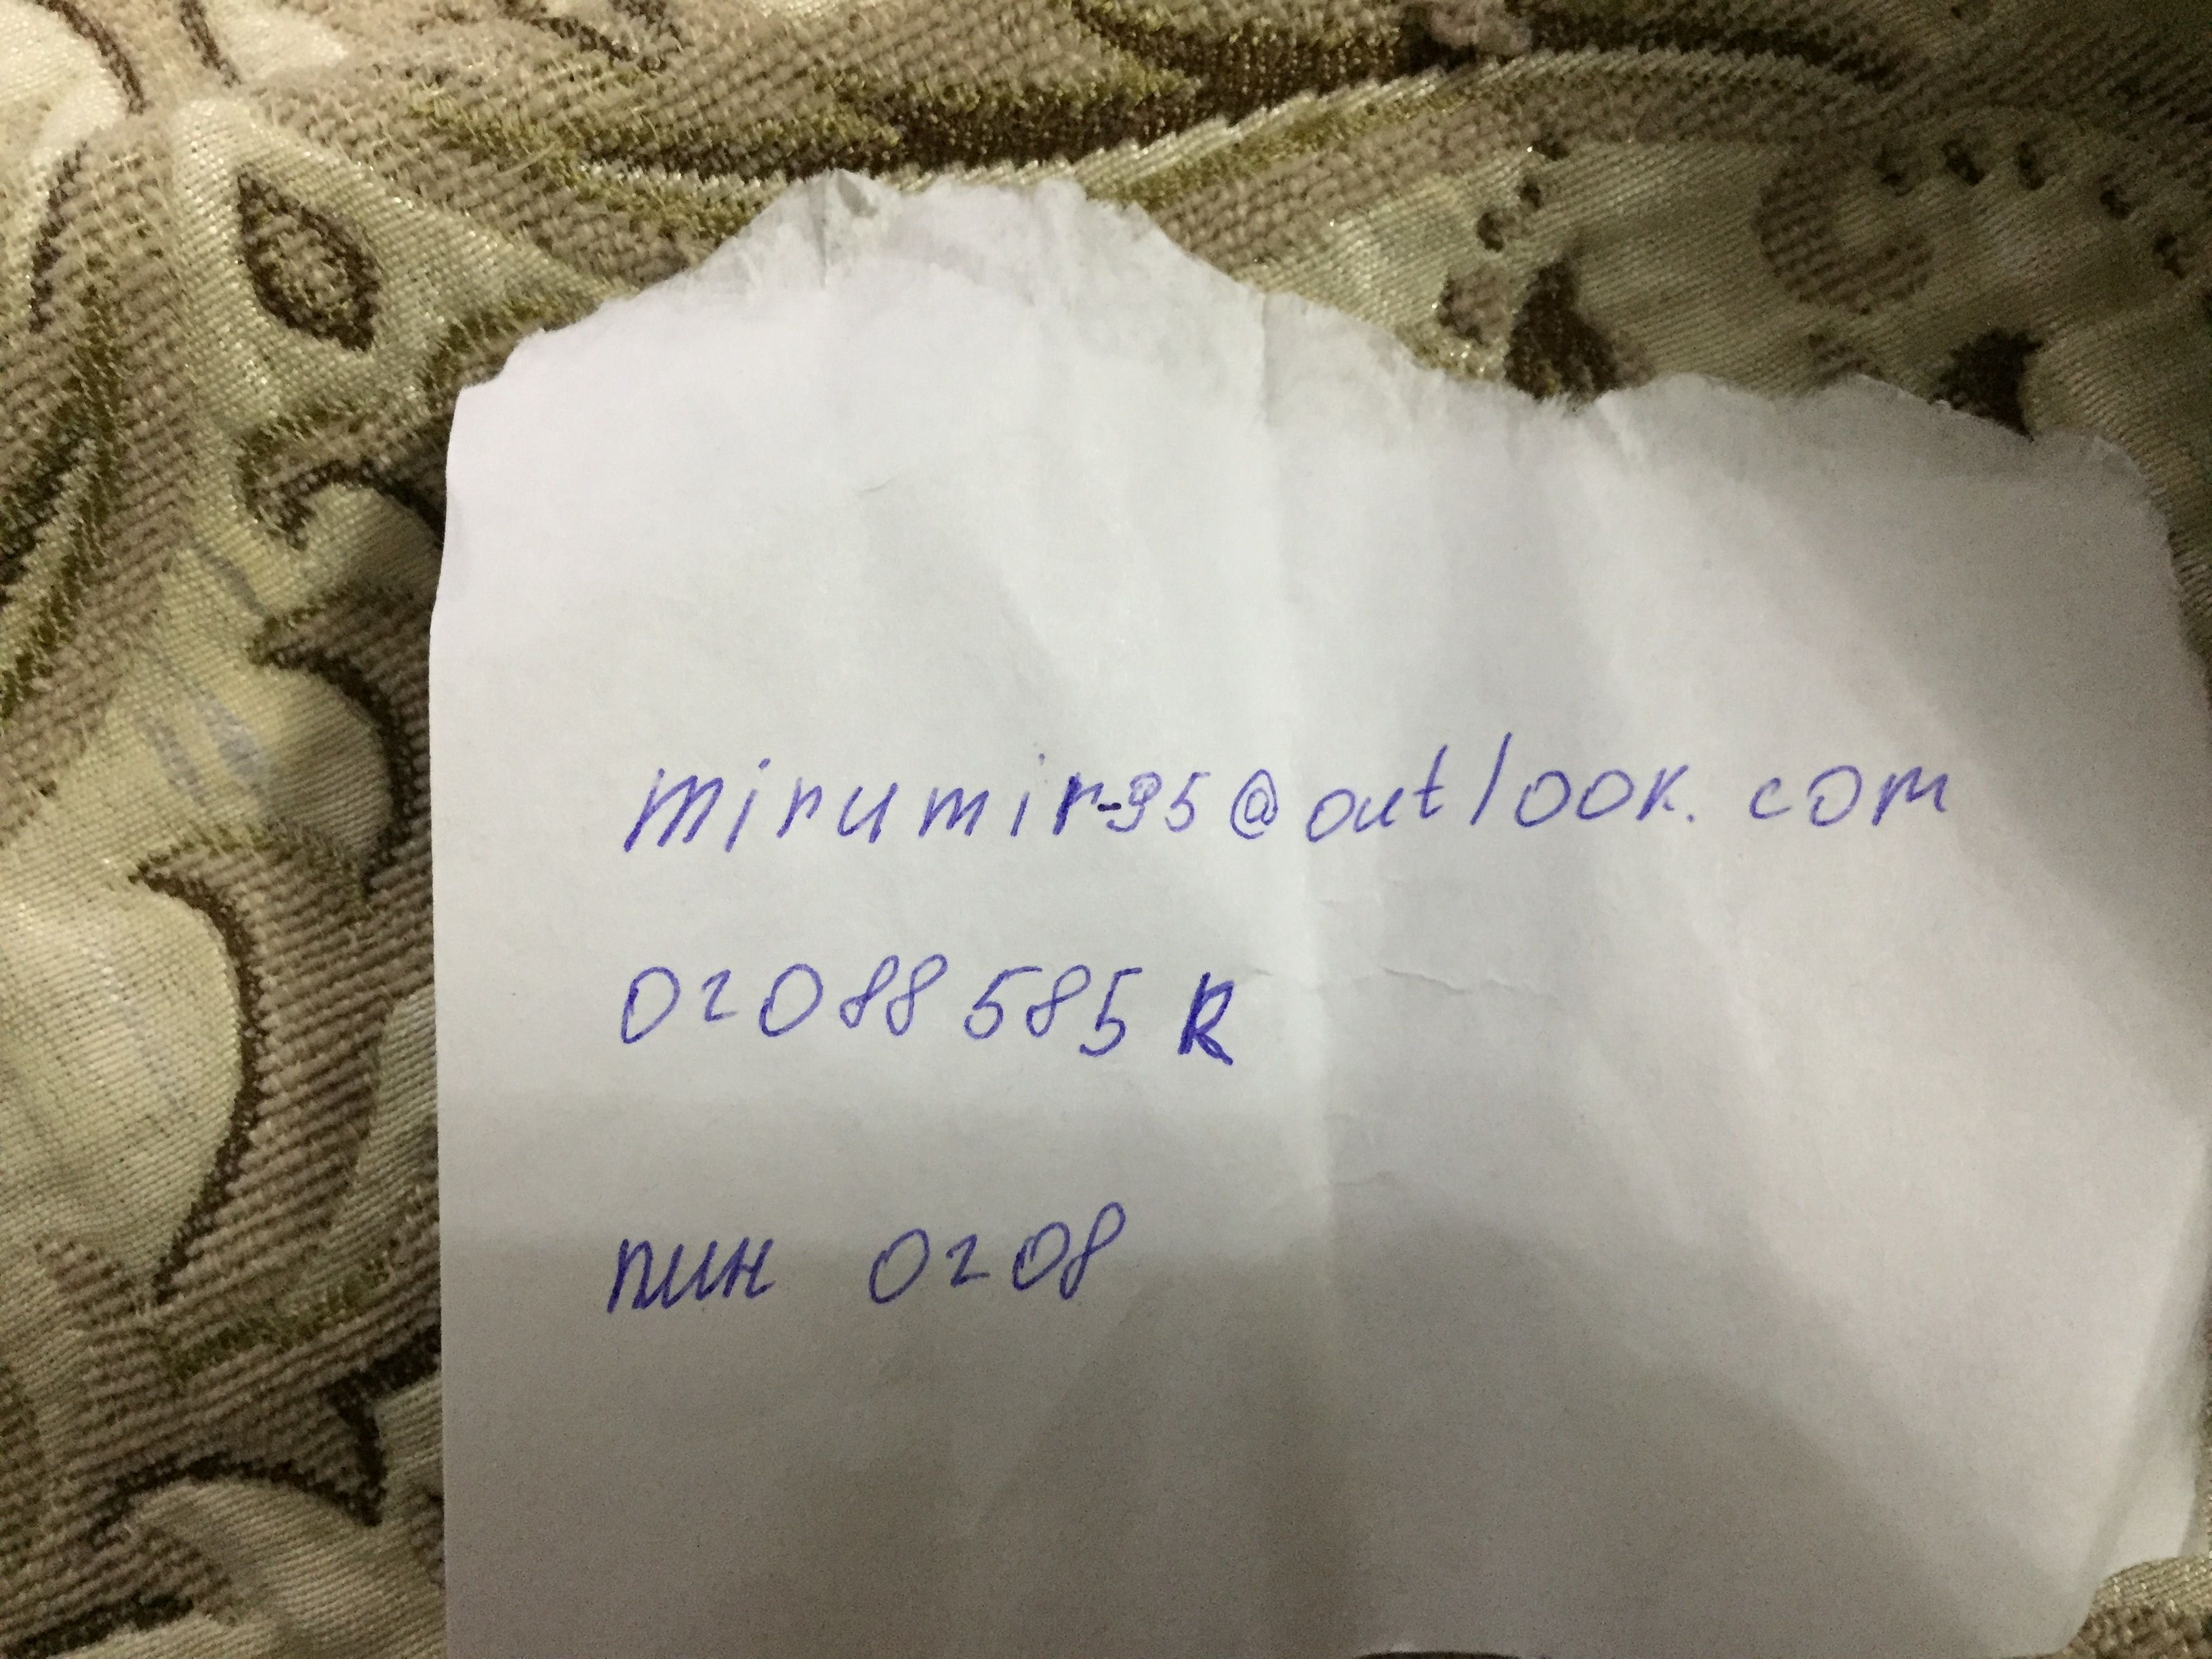 mirumir-95@outlook.com
02088585R
пин 0208